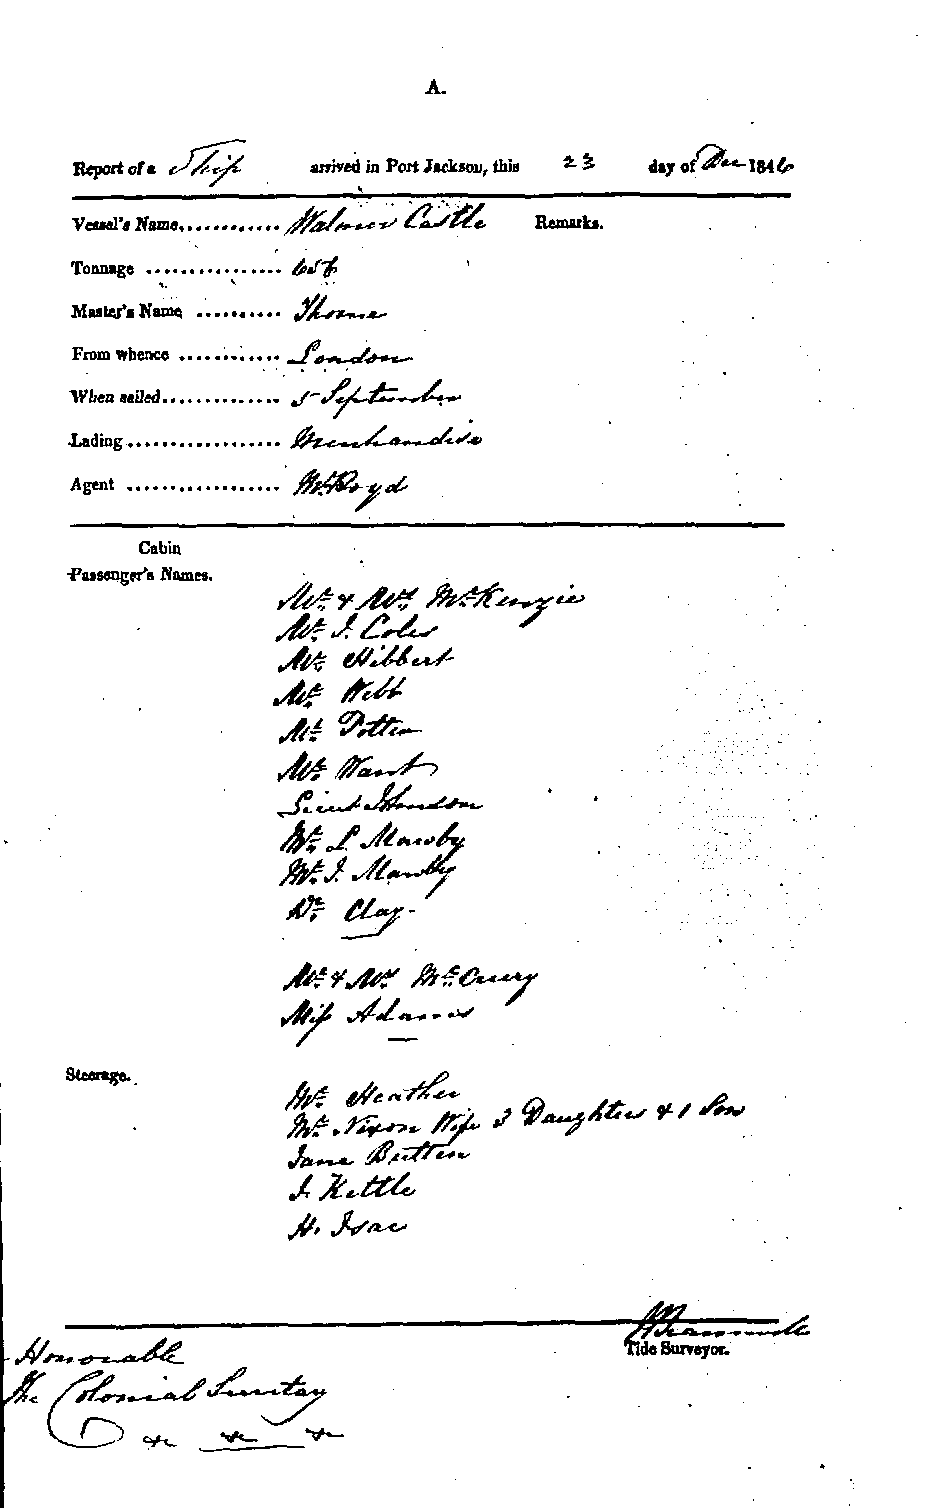 A.
Report of a Ship arrived in Port Jackson, this 23 day of Dec 1846
Vessel's Name............ Walmer Castle Remarks.
Tonnage ................ 656
Master's Name .......... Thorne
From whence ............ London
When sailed.............. 5 September
Lading.................. Merchandise
Agent .................. Mr Boyd
Cabin
Passenger's Names.
Mr. & Mrs McKenzie
Mr. J. Coles
Mr. Hibbert
Mr. Webb
Mr. Potter
Mr. Want
Lieut Johnson
Mr. L. Mawby
Mr. J. Mawby
Dr. Clay
Mr. & Mrs McCurry
Miss Adams
Steerage.
Mr. Heather
Mr. Nixon Wife 3 Daughters & 1 Son
Jane Butten
J. Kettle
H. Isac
Tide Surveyor.
Honorable
The Colonial Secretay
&c &c &c